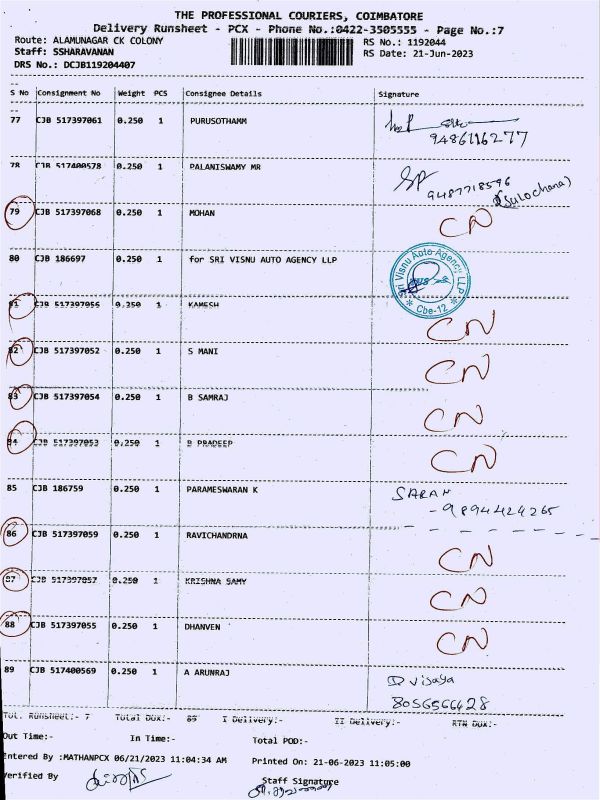 THE PROFESSIONAL COURIERS, COIMBATORE
Delivery Runsheet - PCX - Phone No.:0422-3505555 - Page No.:7
Route: ALAMUNAGAR CK COLONY RS No.: 1192044
Staff: SSHARAVANAN RS Date: 21-Jun-2023
DRS No.: DCJB119204407
S No Consignment No Weight PCS Consignee Details Signature
77 CJB 517397061 0.250 1 PURUSOTHAMM
9486116277
78 CJB 517400578 0.250 1 PALANISWAMY MR SP
9487718596
(Sulochana)
79 CJB 517397068 0.250 1 MOHAN CN
80 CJB 186697 0.250 1 for SRI VISNU AUTO AGENCY LLP Sri Visnu Auto Agency LLP * Cbe-12 *
81 CJB 517397056 0.250 1 KAMESH CN
82 CJB 517397052 0.250 1 S MANI CN
83 CJB 517397054 0.250 1 B SAMRAJ CN
84 CJB 517397053 0.250 1 B PRADEEP CN
85 CJB 186759 0.250 1 PARAMESWARAN K SARAN
- 9894424265
86 CJB 517397059 0.250 1 RAVICHANDRNA CN
87 CJB 517397057 0.250 1 KRISHNA SAMY CN
88 CJB 517397055 0.250 1 DHANVEN CN
89 CJB 517400569 0.250 1 A ARUNRAJ Vijaya
8056566428
Tot. Runsheet:- 7 Total Dox:- 89 I Delivery:- II Delivery:- RTN Dox:-
Out Time:- In Time:- Total POD:-
Entered By :MATHANPCX 06/21/2023 11:04:34 AM Printed On: 21-06-2023 11:05:00
Verified By Staff Signature